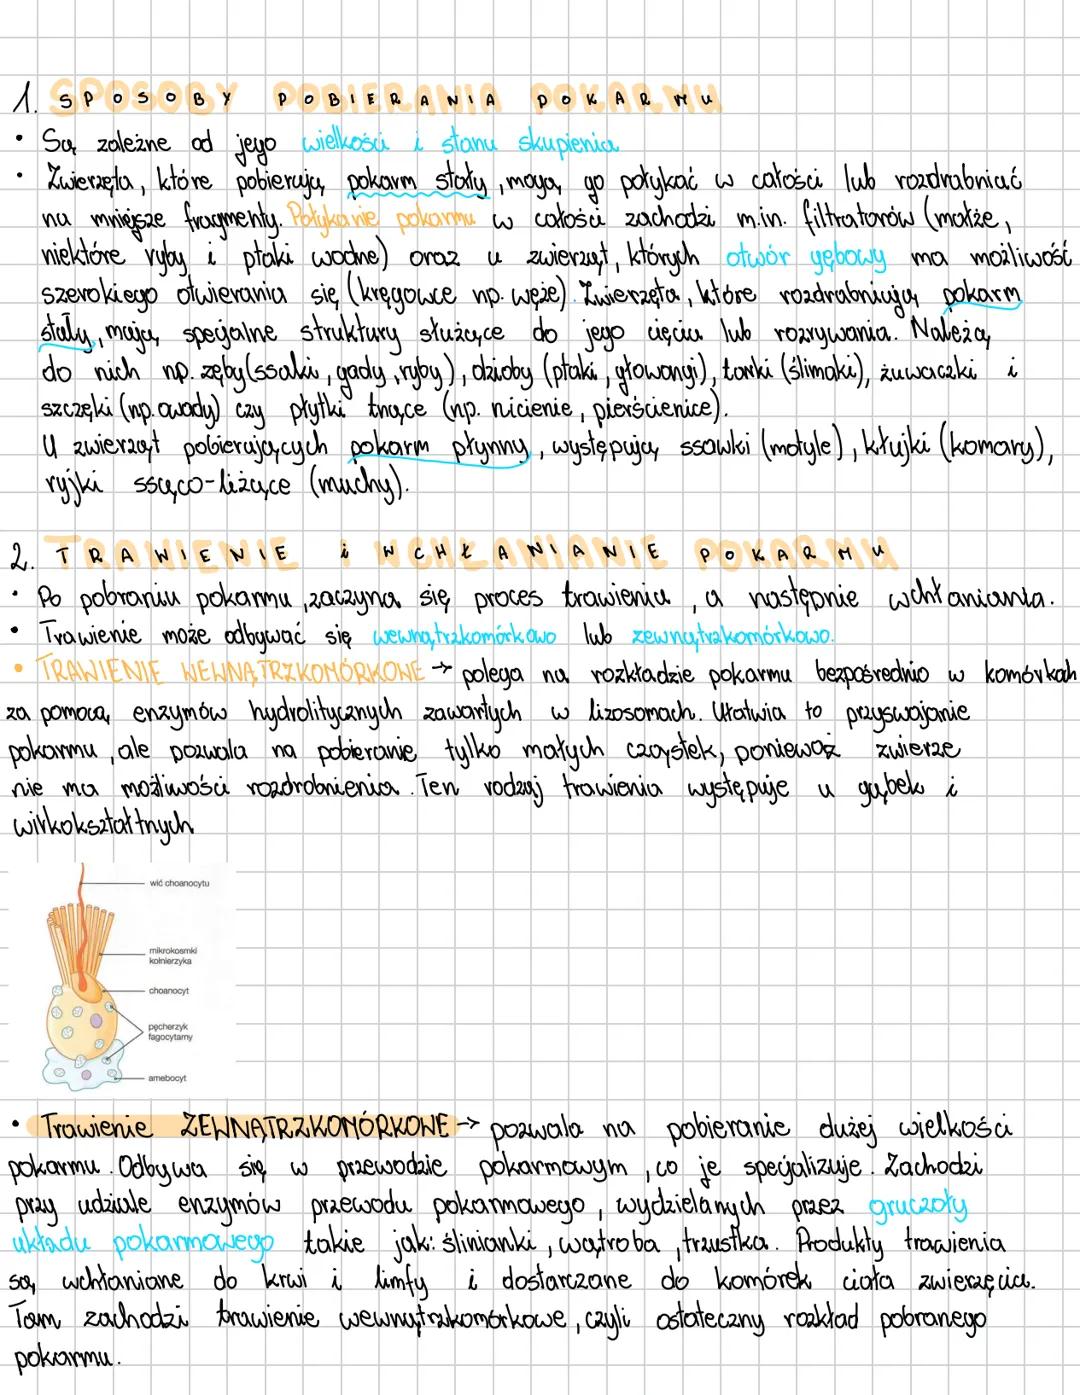 1. SPOSOBY POBIERANIA POKARMU
• Są zależne od jego wielkości i stanu skupienia
• Zwierzęta, które pobierają pokarm stały, mogą go połykać w całości lub rozdrabniać
na mniejsze fragmenty. Połykanie pokarmu w całości zachodzi m.in. filtratorów (małże,
niektóre ryby i ptaki wodne) oraz u zwierząt, których otwór gębowy ma możliwość
szerokiego otwierania się (kręgowce np. węże). Zwierzęta, które rozdrabniają pokarm
stały, mają specjalne struktury służące do jego cięcia lub rozrywania. Należą
do nich np. zęby (ssaki, gady, ryby), dzioby (ptaki, głowonogi), tarki (ślimaki), żuwaczki i
szczęki (np. owady) czy płytki tnące (np. nicienie, pierścienice).
U zwierząt pobierających pokarm płynny, występują ssawki (motyle), kłujki (komary),
ryjki ssąco-liżące (muchy).
2. TRAWIENIE i WCHŁANIANIE POKARMU
• Po pobraniu pokarmu, zaczyna się proces trawienia, a następnie wchłaniania.
• Trawienie może odbywać się wewnątrzkomórkowo lub zewnątrzkomórkowo.
• TRAWIENIE WEWNĄTRZKOMÓRKOWE → polega na rozkładzie pokarmu bezpośrednio w komórkach
za pomocą enzymów hydrolitycznych zawartych w lizosomach. Ułatwia to przyswajanie
pokarmu, ale pozwala na pobieranie tylko małych cząstek, ponieważ zwierze
nie ma możliwości rozdrobnienia. Ten rodzaj trawienia występuje u gąbek i
wirkokształtnych
wić choanocytu
mikrokosmki
kołnierzyka
choanocyt
pęcherzyk
fagocytarny
amebocyt
• Trawienie ZEWNĄTRZKOMÓRKOWE → pozwala na pobieranie dużej wielkości
pokarmu. Odbywa się w przewodzie pokarmowym, co je specjalizuje. Zachodzi
przy udziale enzymów przewodu pokarmowego, wydzielanych przez gruczoły
układu pokarmowego takie jak: ślinianki, wątroba, trzustka. Produkty trawienia
są wchłaniane do krwi i limfy i dostarczane do komórek ciała zwierzęcia.
Tam zachodzi trawienie wewnątrzkomórkowe, czyli ostateczny rozkład pobranego
pokarmu.